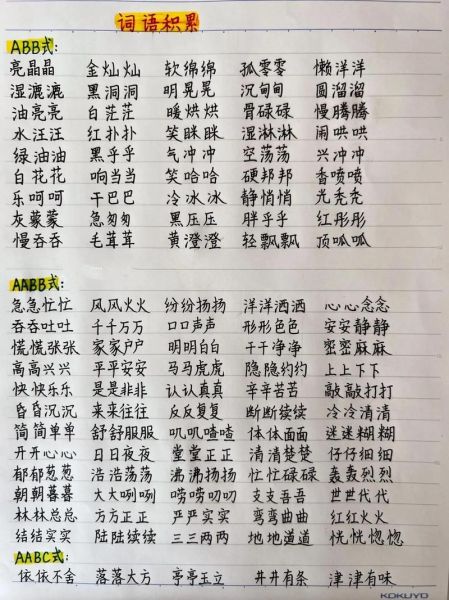 词语积累
ABB式:
亮晶晶 金灿灿 软绵绵 孤零零 懒洋洋
湿漉漉 黑洞洞 明晃晃 沉甸甸 圆溜溜
油亮亮 白茫茫 暖烘烘 骨碌碌 慢腾腾
水汪汪 红扑扑 笑眯眯 湿淋淋 闹哄哄
绿油油 黑乎乎 气冲冲 空荡荡 兴冲冲
白花花 响当当 笑哈哈 硬邦邦 香喷喷
乐呵呵 干巴巴 冷冰冰 静悄悄 光秃秃
灰蒙蒙 急匆匆 黑压压 胖乎乎 红彤彤
慢吞吞 毛茸茸 黄澄澄 轻飘飘 顶呱呱
AABB式:
急急忙忙 风风火火 纷纷扬扬 洋洋洒洒 心心念念
吞吞吐吐 千千万万 口口声声 形形色色 安安静静
慌慌张张 家家户户 明明白白 干干净净 密密麻麻
高高兴兴 平平安安 马马虎虎 隐隐约约 上上下下
快快乐乐 是是非非 认认真真 辛辛苦苦 敲敲打打
昏昏沉沉 来来往往 反反复复 断断续续 冷冷清清
简简单单 舒舒服服 叽叽喳喳 体体面面 迷迷糊糊
开开心心 日日夜夜 堂堂正正 清清楚楚 仔仔细细
郁郁葱葱 浩浩荡荡 沸沸扬扬 忙忙碌碌 轰轰烈烈
朝朝暮暮 大大咧咧 唠唠叨叨 支支吾吾 世世代代
林林总总 方方正正 严严实实 弯弯曲曲 红红火火
结结实实 陆陆续续 三三两两 地地道道 恍恍惚惚
AABC式:
依依不舍 落落大方 亭亭玉立 井井有条 津津有味
KOKUYO